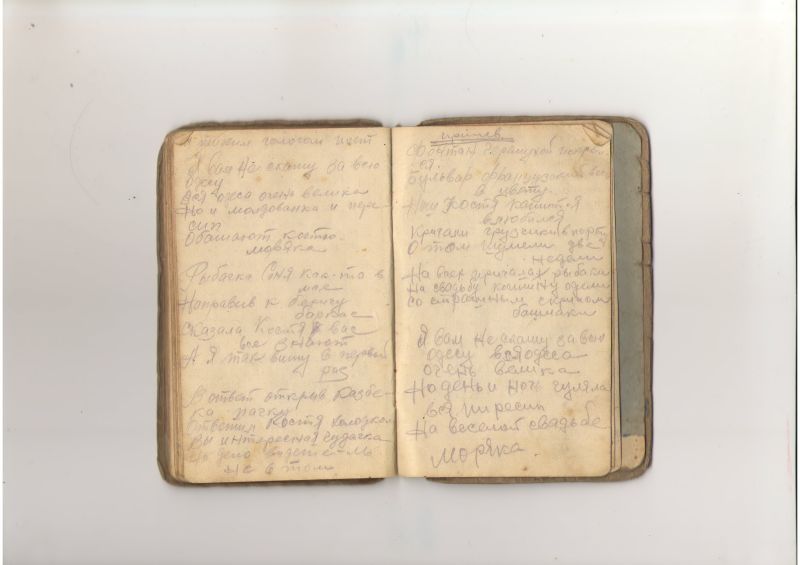 И тихим голосом поет
Я вам не скажу за всю
Одесу
Вся одеса очень велика
Но и молдованка и пере-
сип
Обажают костю
моряка
Рыбачка Соня как-то в
мае
Направив к берегу
баркас
Сказала Костя вас
все знают
А я так вижу в первый
раз
В ответ открыв казбе-
ка пачку
Ответил Костя холодком
Вы интересная чудачка
Но дело видете-ли
не в том
припев.
Фонтан черемухой покрыл-
ся
Бульвар французский весь
в цвету
Наш Костя кажится
влюбился
Кричали грузчики в порту
О том шумели две
недели
На всех причалах рыбаки
На свадьбу грузчики одели
со страшным скрипом
башмаки
Я вам не скажу за всю
одесу вся одесса
очень велика
Но день и ночь гуляла
вся пиресип
На веселой свадьбе
моряка.